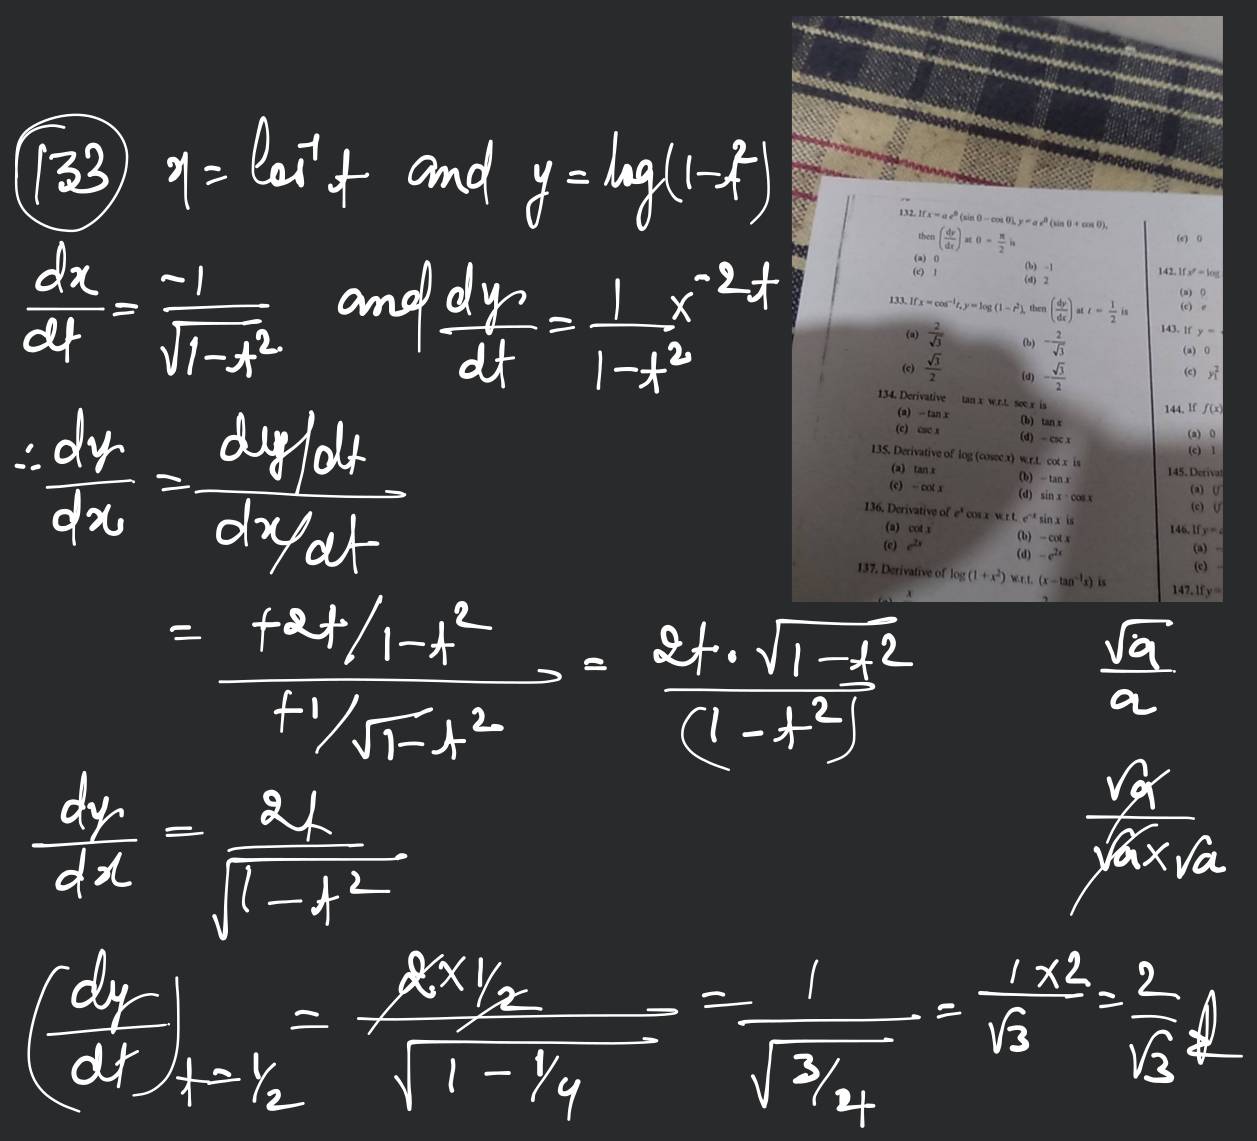 133 x = cos⁻¹ t and y = log(1-t²)
dx/dt = -1/√1-t² and dy/dt = 1/1-t² x -2t
∴ dy/dx = dy/dt / dx/dt
= +2t/1-t² / +1/√1-t² = 2t.√1-t² / (1-t²)
√a/a
dy/dx = 2t/√1-t²
√a/√a×√a
(dy/dt) t=1/2 = 2×1/2 / √1-1/4 = 1/√3/4 = 1×2/√3 = 2/√3
132. If x = a e^θ (sin θ – cos θ), y = a e^θ (sin θ + cos θ),
then (dy/dx) at θ = π/2 is
(a) 0 (b) -1
(c) 1 (d) 2
133. If x = cos⁻¹t, y = log (1 – t²), then (dy/dx) at t = 1/2 is
(a) 2/√3 (b) -2/√3
(c) √3/2 (d) -√3/2
134. Derivative tan x w.r.t. sec x is
(a) – tan x (b) tan x
(c) csc x (d) – csc x
135. Derivative of log (cosec x) w.r.t. cot x is
(a) tan x (b) – tan x
(c) – cot x (d) sin x · cos x
136. Derivative of eˣ cos x w.r.t. e⁻ˣ sin x is
(a) cot x (b) – cot x
(c) e²ˣ (d) – e²ˣ
137. Derivative of log (1 + x²) w.r.t. (x – tan⁻¹x) is
(c) 0
142. If xʸ = log
(a) 0
(c) e
143. If y =
(a) 0
(c) y₁²
144. If f(x)
(a) 0
(c) 1
145. Derivat
(a)
(c)
146. If y =
(a) –
(c) –
147. If y =